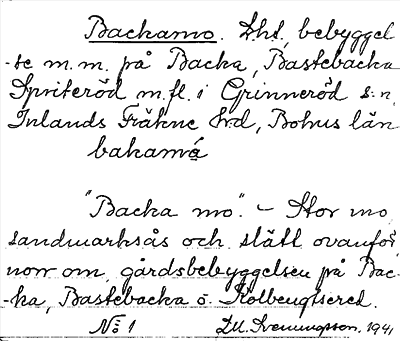 Backamo. Lht, bebyggel
-se m.m. på Backa, Bastebacka
Spriteröd m.fl. i Grinneröd s:n,
Inlands Fräkne hrd, Bohus län
bakamo
"Backa mo". – Stor mo
sandmarksås och slätt ovanför,
norr om gårdsbebyggelsen på Bac-
-ka, Bastebacka o. Kolbengtsered.
No 1 1941